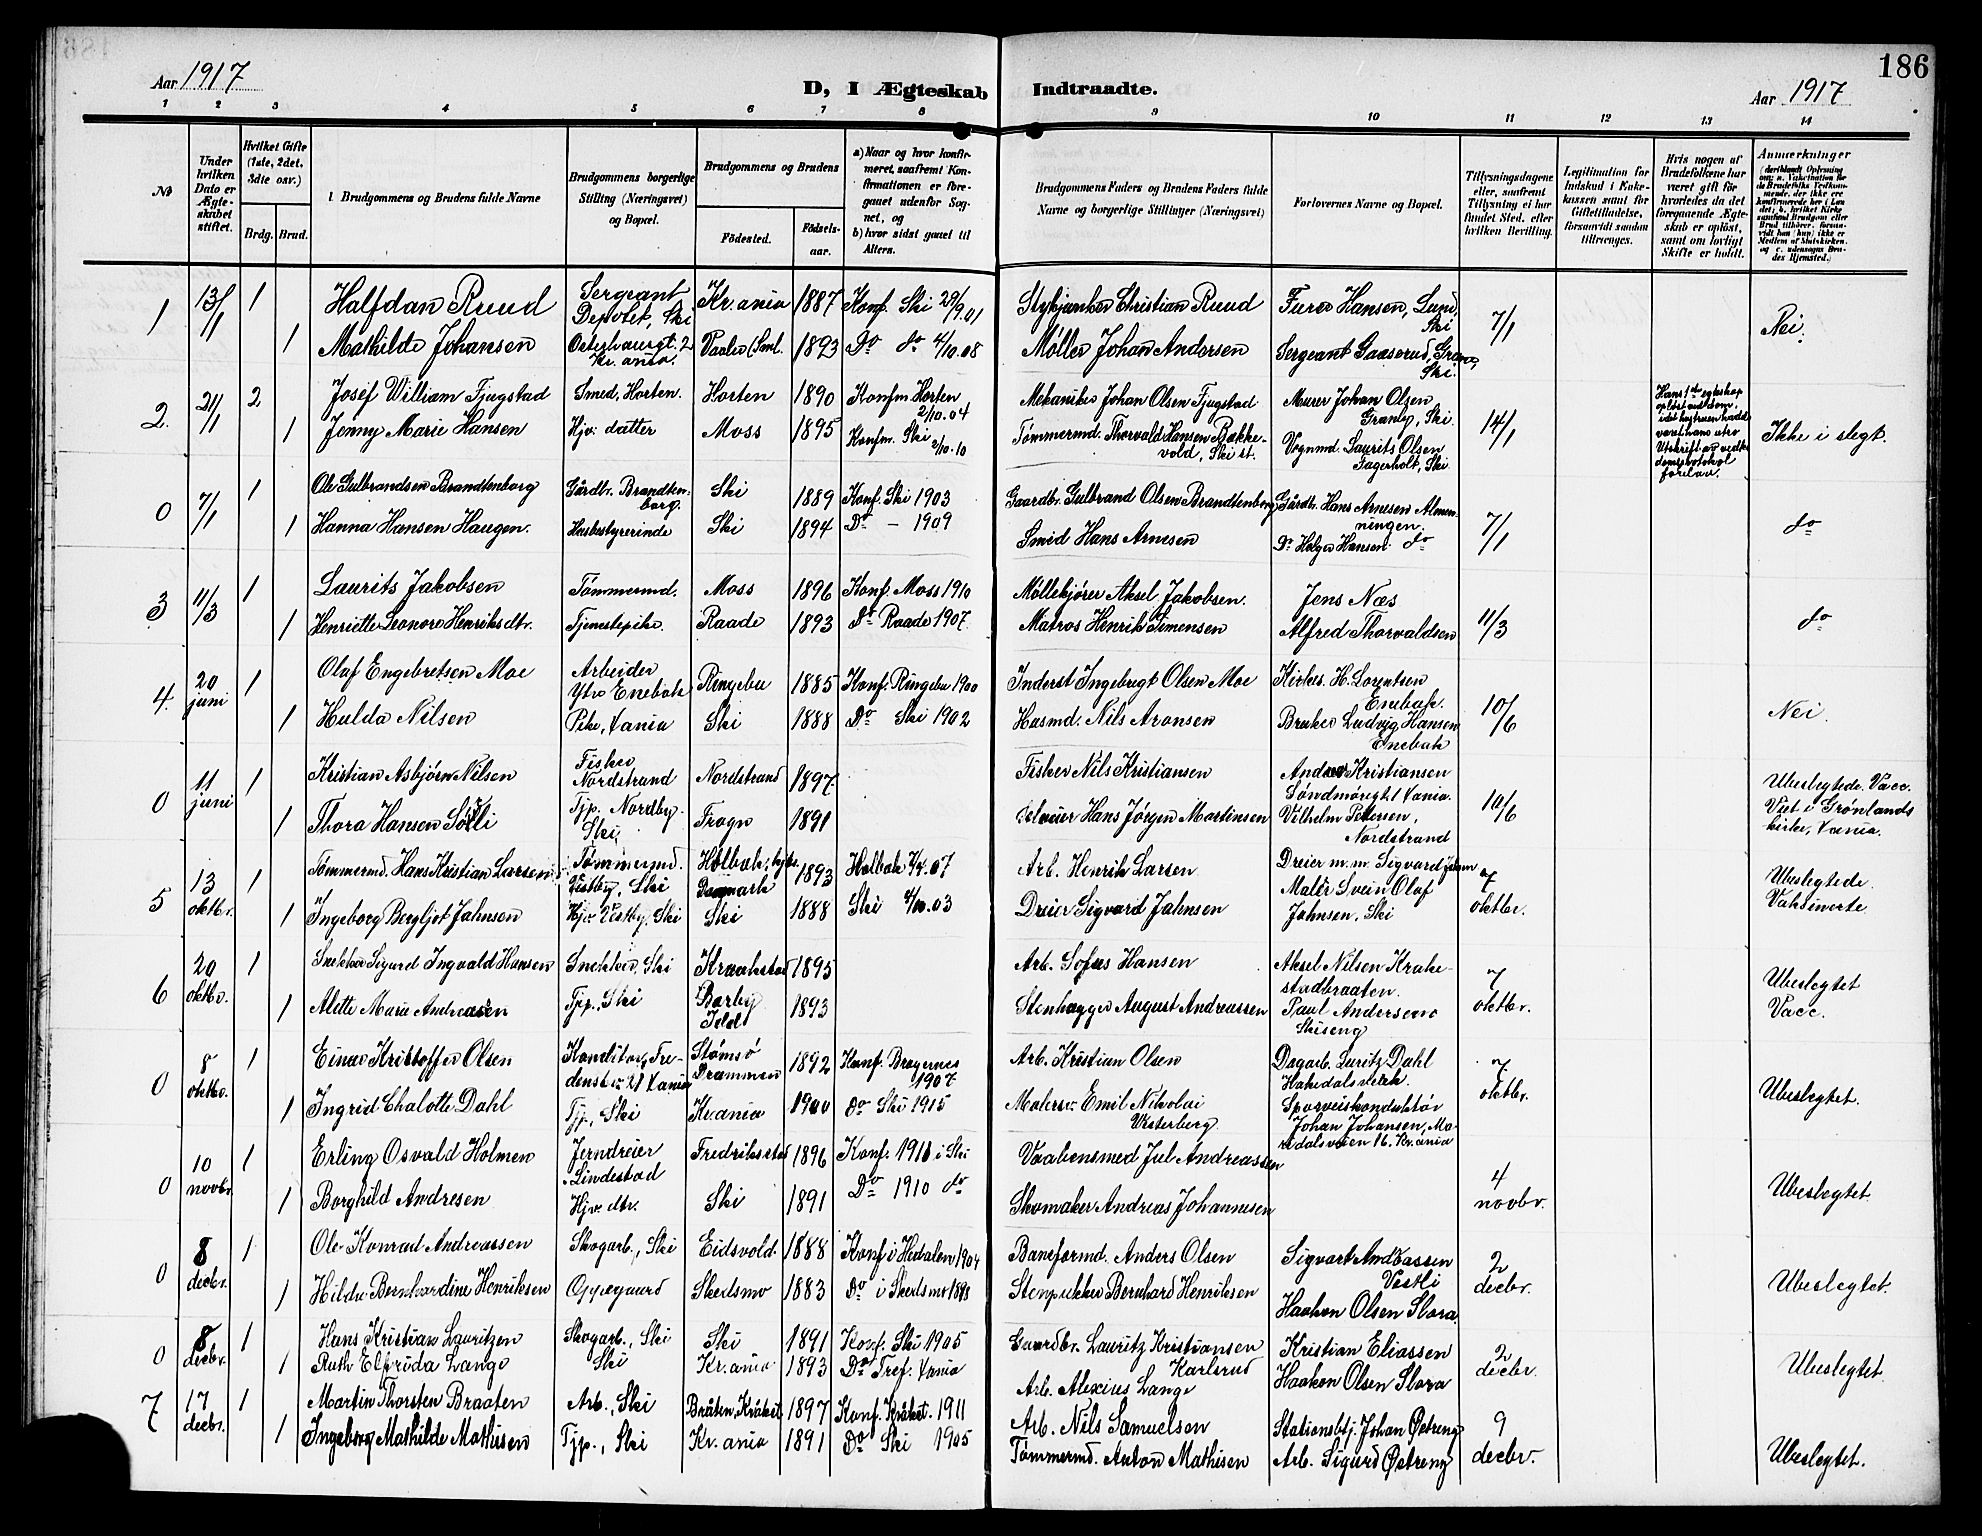 186
Aar 1917
D, I Ægteskab Indtraadte.
Aar 1917
1 2 3 4 5 6 7 8 9 10 11 12 13 14
№
Under hvilken Dato er Ægteskabet stiftet.
Hvilket Gifte (1ste, 2det, 3die osv.)
Brdg. Brud.
Brudgommens og Brudens fulde Navne
Brudgommens borgerlige Stilling (Næringsvei) og Bopæl.
Brudgommens og Brudens
Födested.
Födselsaar.
a) Naar og hvor konfirmeret, saafremt Konfirmationen er foregaaet udenfor Sognet, og
b) hvor sidst gaaet til Alters.
Brudgommens Faders og Brudens Faders fulde Navne og borgerlige Stillinger (Næringsvei)
Forlovernes Navne og Bopæl.
Tillysningsdagene eller, saafremt Tillysning ei har fundet Sted, efter hvilken Bevilling.
Legitimation for Indskud i Enkekassen samt for Giftetilladelse, forsaavidt saadan tiltrænges.
Hvis nogen af Brudefolkene har været gift før hvorledes da det foregaaende Ægteskab er opløst, samt om lovligt Skifte er holdt.
Anmærkninger
1 13/1 1 Halfdan Ruud Sergeant Depotet, Ski Kr.ania 1887 Konf. Ski 29/9.01 Stykjunker Christian Ruud Furer Hansen, Lund, Ski 7/1 Nei.
1 Mathilde Johansen Osterhausgt. 2 Kr.ania. Vaaler (Sml. 1893 Do do 4/10.08 Møller Johan Andersen Sergeant Gaaserud, Ski.
2. 21/1 2 Josef William Fjugstad Smed, Horten. Horten 1890 Konfm Horten 2/10.04 Mekaniker Johan Olsen Fjugstad Murer Johan Olsen Granly, Ski. 14/1 Hans 1ste egteskap opløst ved dom, idet hustruen hadde været hans utro Utskrift av dømsprotokol forelaa. Ikke i slegt.
1 Jenny Marie Hansen Hjv. datter Moss 1895 Konfm. Ski 2/10.10 Tømmermd. Thorvald Hansen Bakkevold, Ski st. Vognmd. Laurits Olsen Fagerholt, Ski
0 7/1 1 Ole Gulbrandsen Brandtenborg Gårdbr. Brandtenborg. Ski 1889 Konf. Ski 1903 Gaardbr. Gulbrand Olsen Brandtenborg Gårdbr. Hans Arnesen Almenningen. 7/1 do
1 Hanna Hansen Haugen. Husbestyrerinde Ski 1894 Do - 1909 Smid Hans Arnesen Do Helger Hansen do
3 11/3 1 Laurits Jakobsen Tømmermd. Moss 1896 Konf. Moss 1910 Møllekjører Aksel Jakobsen. Jens Næs 11/3 do
1 Henriette Leonore Henriksdtr. Tjenestepike. Raade 1893 Do Raade 1907. Matros Henrik Simensen Alfred Thorvaldsen
4. 20 juni 1 Olaf Engebretsen Moe Arbeider Ytre Enebak Ringebu 1885 Konf. Ringebu 1900 Inderst Ingebrigt Olsen Moe Kirkes. H. Lorentsen Enebak. 10/6 Nei.
1 Hulda Nilsen Pike, Kania Ski 1888 Do Ski 1902 Husmd. Nils Aronsen Bruker Ludvig Hansen Enebak
0 11 juni 1 Kristian Asbjørn Nilsen Fisker Nordstrand Nordstrand 1897. Fisker Nils Kristiansen Andreas Kristiansen Søndmørsgt. 1 Kania. 10/6 Ubeslegtede. Vacc. Viet i Grønlands kirke, Kania.
1 Thora Hansen Solli Tjp. Nordby. Ski. Frogn 1891 Hans Jørgen Martinsen Vilhelm Pettersen, Nordstrand
5 13 oktbr. 1 Tømmermd. Hans Kristian Larsen Tømmermd. Vestby, Ski Holbæk, Danmark 1893 Holbæk 7/4.07 Arb. Henrik Larsen Dreier m.m. Sigvard Jahnsen 7 oktbr. Ubeslegtede. Vaksinerte.
1 Ingeborg Bergljot Jahnsen Hjv. Vestby, Ski Ski 1888 Ski 4/10.03 Dreier Sigvard Jahnsen Maler Svein Olaf Jahnsen, Ski
6 20 oktbr. 1 Snekker Sigurd Ingvald Hansen Snekker, Ski Kraakstad 1895 Arb. Sofus Hansen Aksel Nilsen Krakestadbraaten. 7 oktbr. Ubeslegtet Vacc.
1 Alette Marie Andreasen Tjp., Ski Barby Idd 1893 Stenhugger August Andreassen Paul Andersen Skiseng
0 8 oktbr. 1 Einar Kristoffer Olsen Konditor, Fredensbr. 21 Kania Stømsø Drammen 1892 Konf. Bragernes 1907. Arb. Kristian Olsen Dagarb. Luritz Dahl Hakedalsverk. 7 oktbr. Ubeslegtet.
1 Ingrid Chalotte Dahl Tjp., Ski Kr.ania 1900 do Ski 1915 Malersv. Emil Nikolai Vesterberg. Sporveiskonduktør Johan Johansen, Maridalsveien 16. Kr.ania
0 10 novbr. 1 Erling Osvald Holmen Jerndreier Lindestad Fredrikstad 1896 Konf. 1911 i Ski Vaabensmed Jul Andreassen 4 novbr. Ubeslegtet.
1 Borghild Andresen Hjv. dtr. Ski 1891 Do 1910 do Skomaker Andreas Johannesen
0 8 decbr. 1 Ole Konrad Andreassen Skogarb., Ski Eidsvold. 1888 Konf i Hedalen 1904 Baneformd. Anders Olsen Sigvart Andreassen Vestli 2 decbr. Ubeslegtet.
1 Hilda Bernhardine Henriksen Oppegaard Skedsmo 1883 Do i Skedsmo 1898 Stenpukker Bernhard Henriksen Haakon Olsen Slora.
0 8 decbr. 1 Hans Kristian Lauritzen Skogarb., Ski Ski 1891 Konf. Ski 1905 Gaardbr. Lauritz Kristiansen Karlsrud Kristian Eliassen 2 decbr. Ubeslegtet.
1 Ruth Elfrida Lange Ski Kr.ania 1893 Do Tref. Kania Arb. Alexius Lange Haakon Olsen Slora
7 17 decbr. 1 Martin Thorsten Braaten Arb., Ski Bråten, Kråkst. 1897 Konf. Kråkst. 1911 Arb. Nils Samuelsen Stationsbtj. Johan Østreng 9 decbr. Ubeslegtet.
1 Ingeborg Mathilde Mathisen Tjp., Ski Kr.ania 1891 Do Ski 1905 Tømmermd. Anton Mathisen Arb. Sigurd Østreng